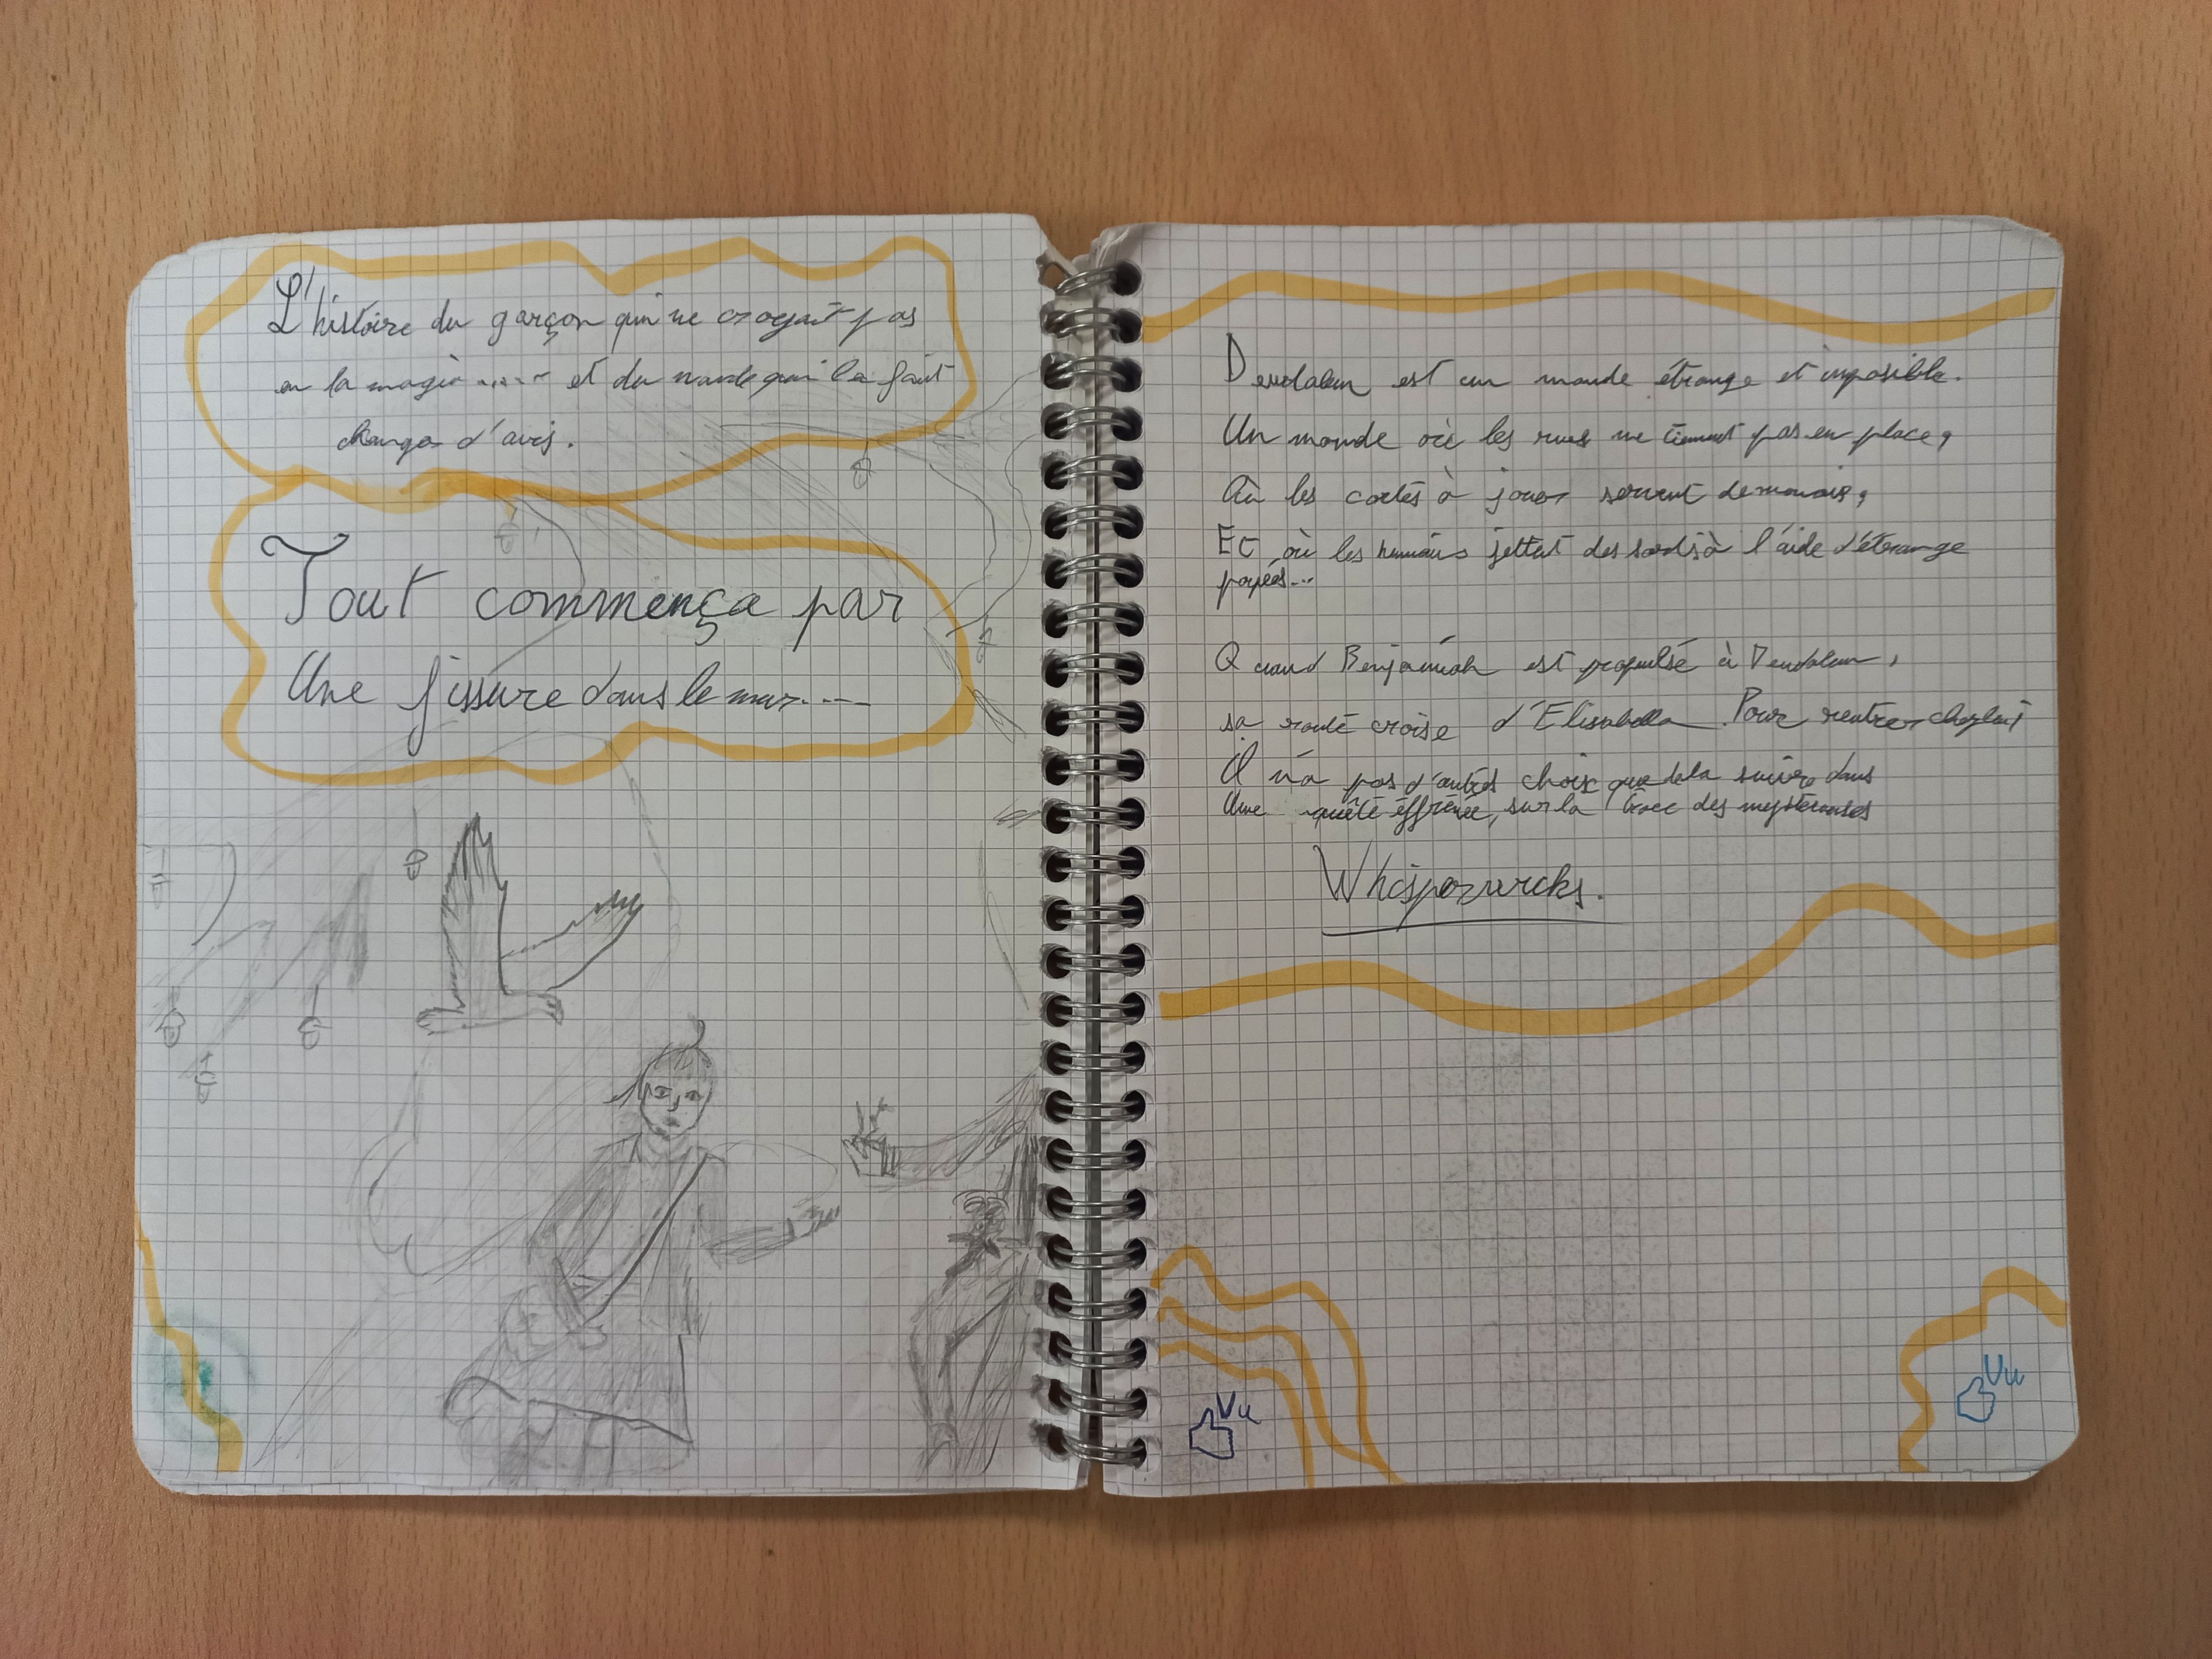 L'histoire du garçon qui ne croyait pas
en la magie ..... et du monde qui l'a fait
changer d'avis.
Tout commença par
Une fissure dans le mur....
Dendalun est un monde étrange et imposible.
Un monde où les rues ne tiennent pas en place,
Où les cartes à jouer servent de monnaie,
Et où les humains jettent des sorts à l'aide d'étrange
poupées...
Quand Benjamiah est propulsé à Dendalun,
sa route croise d'Elisabella. Pour rentrer chez lui
il n'a pas d'autres choix que de la suivre dans
Une quête éffrénée, sur la trace des mystérieuses
Whisperwicks.
Vu
Vu